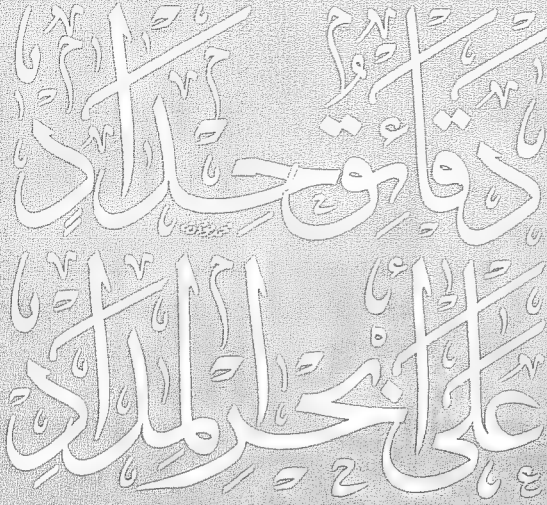 دقائق حداد
على انحر المداد